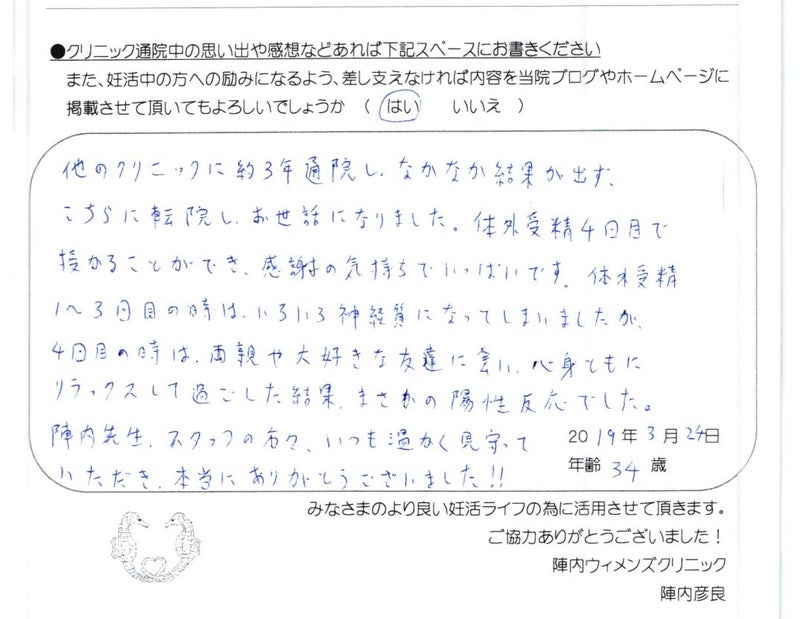 ●クリニック通院中の思い出や感想などあれば下記スペースにお書きください
また、妊活中の方への励みになるよう、差し支えなければ内容を当院ブログやホームページに
掲載させて頂いてもよろしいでしょうか ( はい いいえ )
他のクリニックに約3年通院し、なかなか結果が出ず、
こちらに転院し、お世話になりました。体外受精4回目で
授かることができ、感謝の気持ちでいっぱいです。体外受精
1〜3回目の時は、いろいろ神経質になってしまいましたが、
4回目の時は、両親や大好きな友達に会い、心身ともに
リラックスして過ごした結果、まさかの陽性反応でした。
陣内先生、スタッフの方々、いつも温かく見守って
いただき、本当にありがとうございました!!
2019年3月24日
年齢 34 歳
みなさまのより良い妊活ライフの為に活用させて頂きます。
ご協力ありがとうございました！
陣内ウィメンズクリニック
陣内彦良